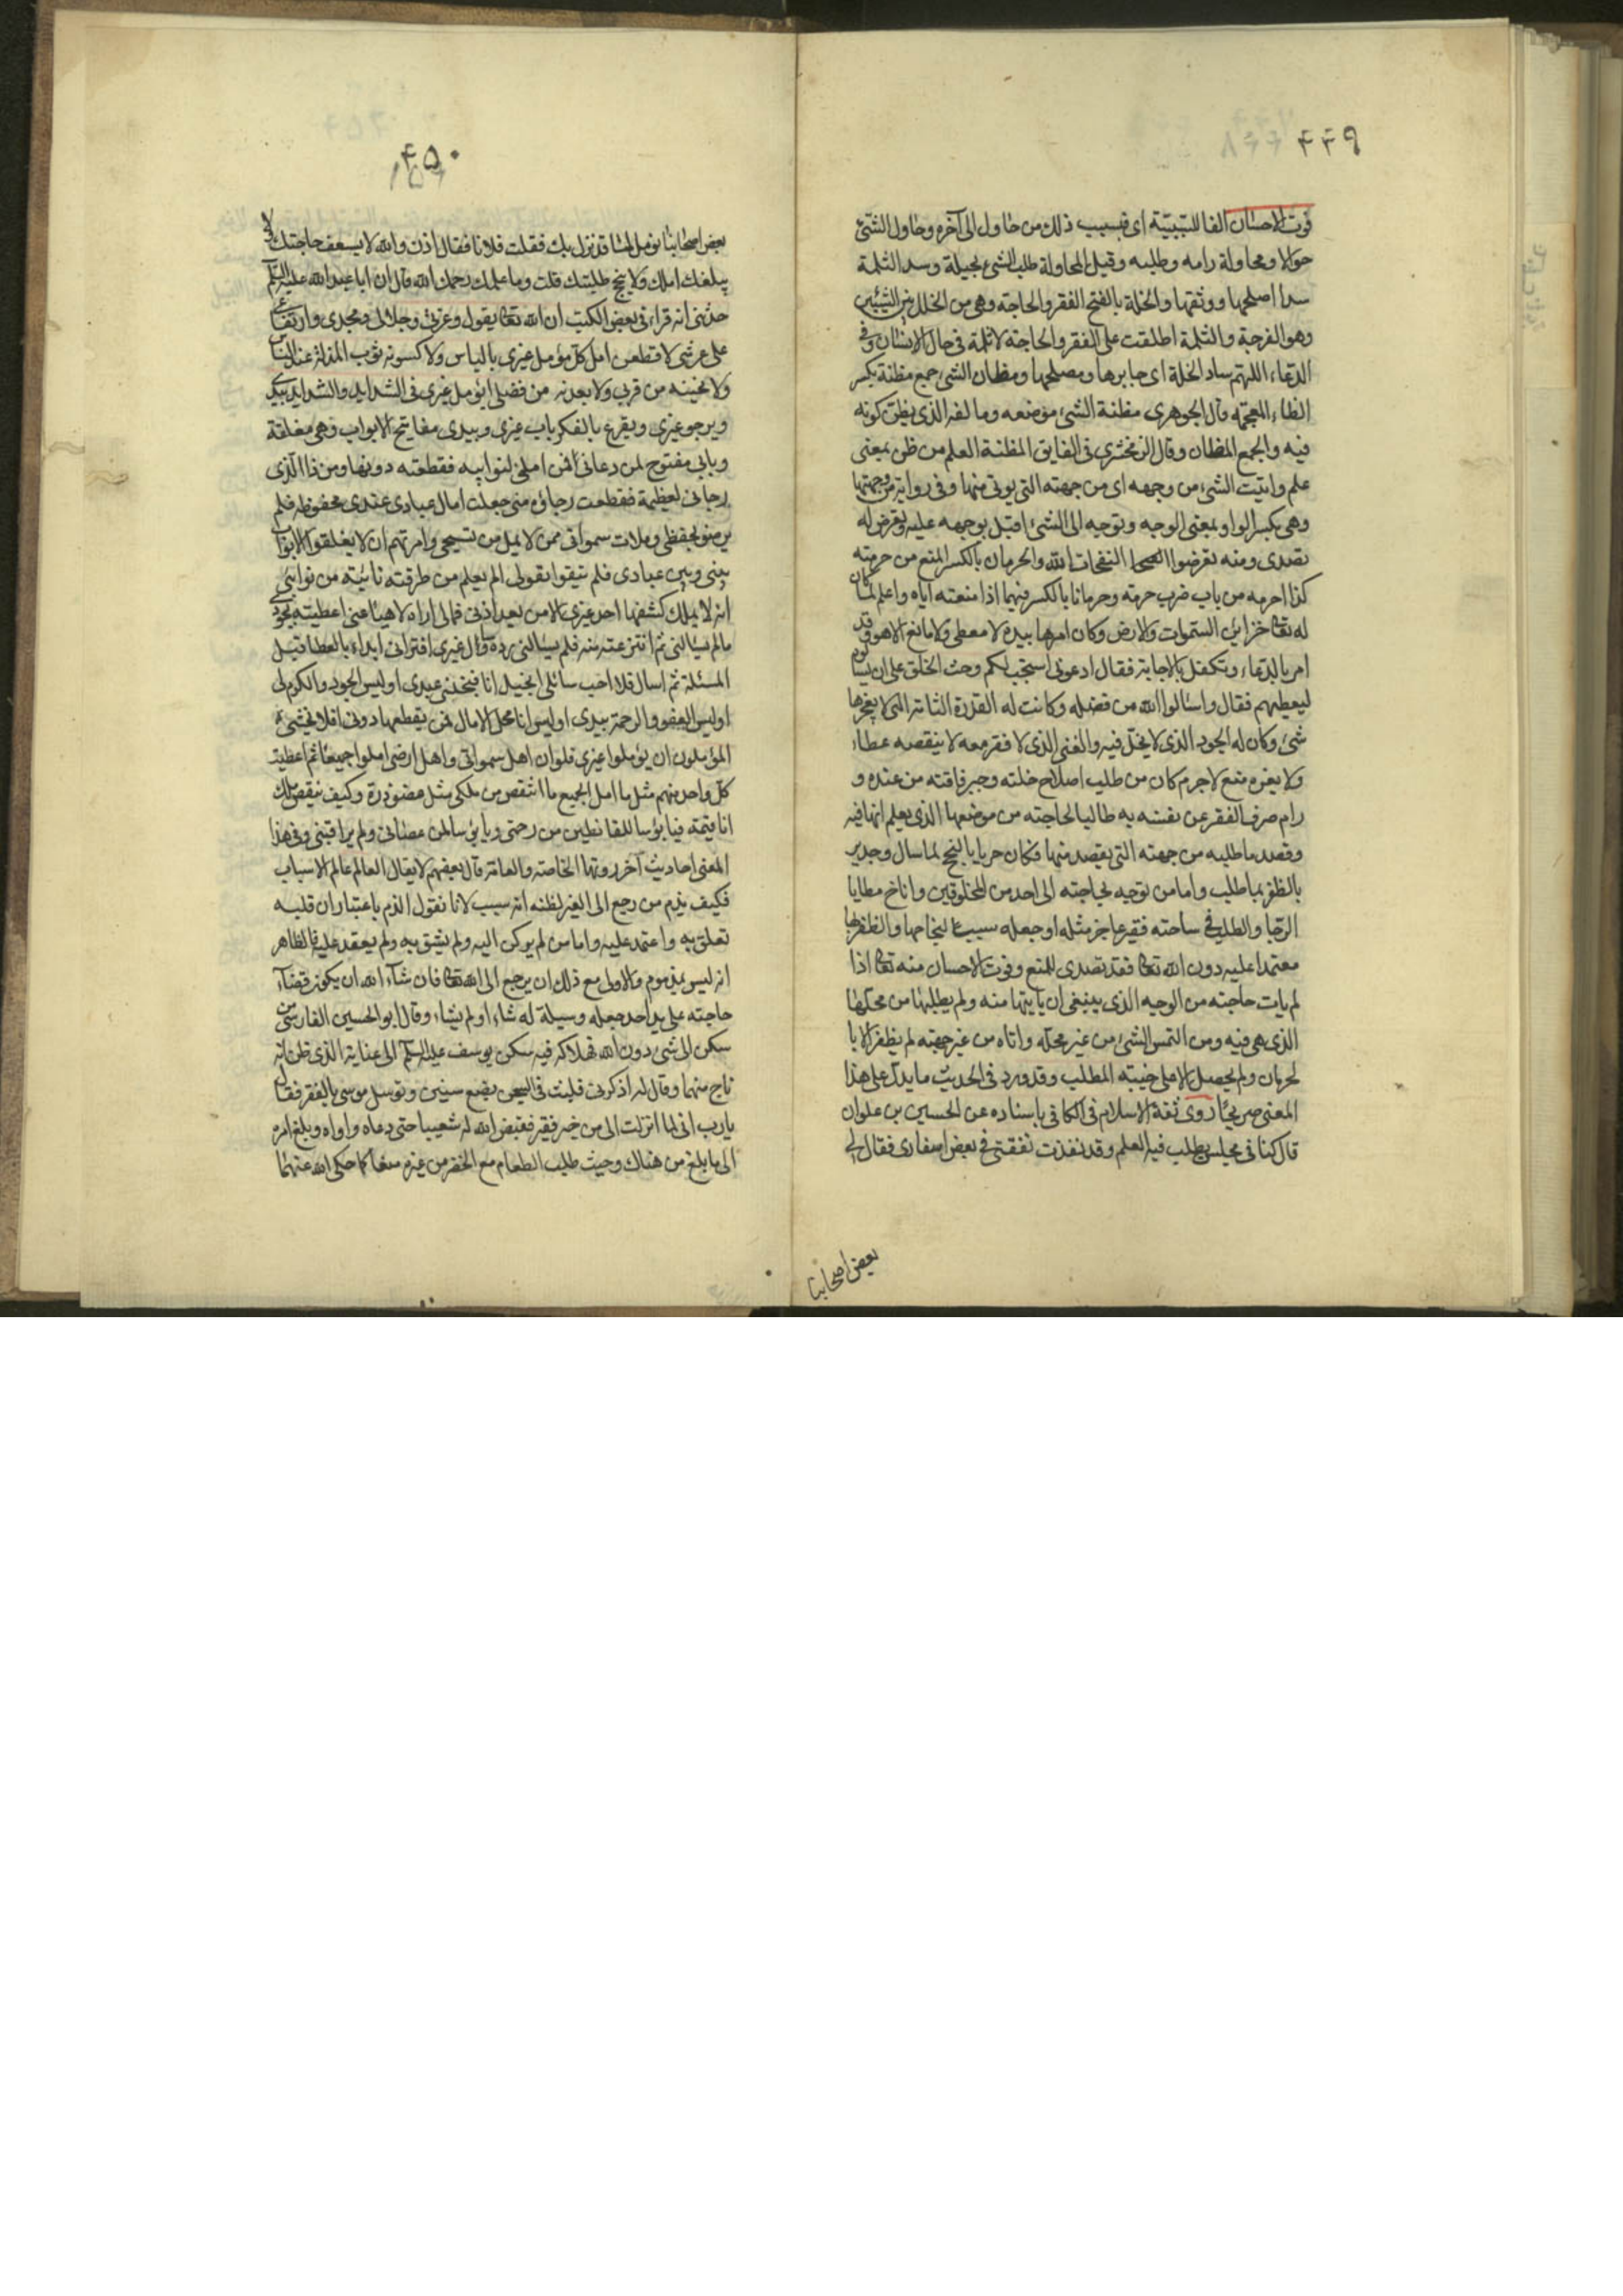 ۴۴۹
فوت الاحسان الفا للسّببيّة اى فبسبب ذلك من حاول الى آخره وحاول الشئ
حوالا ومحاولة رامه وطلبه وقيل المحاولة طلب الشئ بحيلة وسد الثلمة
سدا اصلحها ووثقها والخلة بالفتح الفقر والحاجة وهى من الخلل بين الشيئين
وهو الفرجة والثلمة اطلقت على الفقر والحاجة لانها ثلمة فى حال الانسان وفى
الدعاء اللهم ساد الخلة اى جابرها ومصلحها ومظان الشئ جمع مظنة بكسر
الظاء المعجمة قال الجوهرى مظنة الشئ موضعه ومالفه الذى يظن كونه
فيه والجمع المظان وقال الزمخشرى فى الفايق المظنة المعلم من ظن بمعنى
علم واتيت الشئ من وجهه اى من جهته التى يوتى منها وفى رواية من وجهتها
وهى بكسر الواو بمعنى الوجه وتوجه الى الشئ اقبل بوجهه عليه وتعرض له
تصدى ومنه تعرضوا لنفحات الله والحرمان بالكسر المنع من حرمته
كذا احرمه من باب ضرب حرمة وحرمانا بالكسر فيهما اذا منعته اياه واعلم لما كان
له تعالى خزاين السموات والارض وكان امرها بيده لا معطى ولا مانع الا هو وقد
امر بالدعاء وتكفل بالاجابة فقال ادعونى استجب لكم وحث الخلق على ان يسالوه
ليعطيهم فقال واسئلوا الله من فضله وكانت له القدرة التامة التى لا يعجزها
شئ وكان له الجود الذى لا بخل فيه والغنى الذى لا فقر معه لا ينقصه عطاء
ولا يفره منع لا جرم كان من طلب اصلاح خلته وجبر فاقته من عنده و
رام صرف الفقر عن نفسه به طالبا لحاجته من موضعها الذى يعلم انها فيه
وقصد ما طلبه من جهته التى يقصد منها فكان حريا بالنجح لما سال وجدير
بالظفر بما طلب واما من توجه لحاجته الى احد من المخلوقين واناخ مطايا
الرجا والطلب فى ساحته فقير عاجز مثله او جعله سببا لنجاحها والظفر بها
معتمدا عليه دون الله تعالى فقد تصدى للمنع وفوت الاحسان منه تعالى اذا
لم يات حاجته من الوجه الذى ينبغى ان ياتيها منه ولم يطلبها من محلها
الذى هى فيه ومن التمس الشئ من غير محله واتاه من غير جهته لم يظفر الا با
لحرمان ولم يحصل الا على خيبة المطلب وقد ورد فى الحديث ما يدل على هذا
المعنى صريحا روى ثقة الاسلام فى الكافى باسناده عن الحسين بن علوان
قال كنا فى مجلس يطلب فيه العلم وقد نفدت نفقتى فى بعض اسفارى فقال لى
بعض اصحابنا
۴۵۰
بعض اصحابنا من تؤمل لما قد نزل بك فقلت فلانا فقال اذن والله لا يسعف حاجتك ولا
يبلغك املك ولا ينجح طلبتك قلت وما علمك رحمك الله قال ان ابا عبد الله عليه السلم
حدثنى انه قراء فى بعض الكتب ان الله تعالى يقول وعزتى وجلالى ومجدى وارتفاعى
على عرشى لاقطعن امل كل مؤمل غيرى بالياس ولاكسونه ثوب المذلة عند الناس
ولانحينه من قربى ولابعدنه من فضلى ايؤمل غيرى فى الشدايد والشدايد بيدى
ويرجو غيرى ويقرع بالفكر باب غيرى وبيدى مفاتيح الابواب وهى مغلقة
وبابى مفتوح لمن دعانى فمن املنى لنوايبه فقطعته دونها ومن ذا الذى
رجانى لعظيمة فقطعت رجاؤه منى جعلت امال عبادى عندى محفوظة فلم
يرضوا بحفظى وملات سمواتى ممن لا يمل من تسبيحى وامرتهم ان لا يغلقوا الابواب
بينى وبين عبادى فلم يثقوا بقولى الم يعلم من طرقته نائبة من نوائبى
انه لا يملك كشفها احد غيرى الا من بعد اذنى فمالى اراه لاهيا عنى اعطيته بجودى
ما لم يسالنى ثم انتزعته منه فلم يسالنى رده وسال غيرى افترانى ابداء بالعطا قبل
المسئلة ثم اسال فلا اجيب سائلى ابخيل انا فيبخلنى عبدى اوليس الجود والكرم لى
اوليس العفو والرحمة بيدى اوليس انا محل الامال فمن يقطعها دونى افلا يخشى
المؤملون ان يؤملوا غيرى فلو ان اهل سمواتى واهل ارضى املوا جميعا ثم اعطيت
كل واحد منهم مثل ما امل الجميع ما انتقص من ملكى مثل عضو ذرة وكيف ينقص ملك
انا قيمه فيا بؤسا للقانطين من رحمتى ويا بؤسا لمن عصانى ولم يراقبنى وفى هذا
المعنى احاديث آخر روتها الخاصة والعامة قال بعضهم لا يقال العالم عالم الاسباب
فكيف يذم من رجع الى الغير لظنه انه سبب لانا نقول الذم باعتبار ان قلبه
تعلق به واعتمد عليه واما من لم يركن اليه ولم يثق به ولم يعقد عليه فالظاهر
انه ليس بمذموم والاولى مع ذلك ان يرجع الى الله تعالى فان شاء الله ان يكون قضاء
حاجته على يد احد جعله وسيلة له شاء او لم يشاء وقال ابو الحسين الفارسى من
سكن الى شئ دون الله فهلاكه فيه سكن يوسف عليه السلم الى عناية الذى ظن انه
ناج منهما وقال له اذكرنى فلبث فى السجن بضع سنين وتوسل موسى بالفقر فقال
يارب انى لما انزلت الى من خير فقير فقيض الله له شعيبا حتى دعاه واواه وبلغ امره
الى ما بلغ من هناك وحيث طلب الطعام مع الخضر من غيره منعا كما حكى الله عنهما